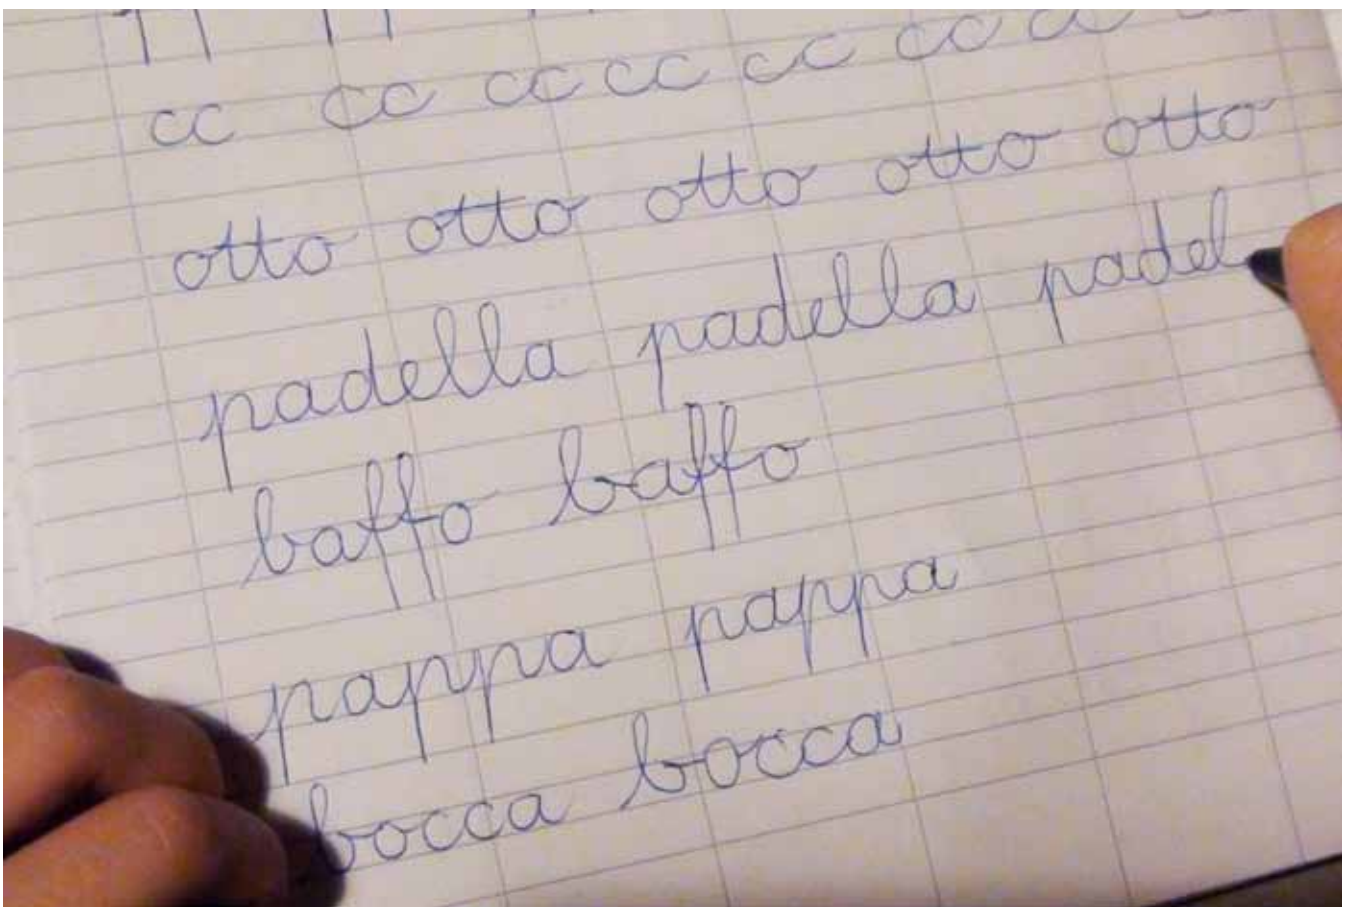 cc cc cc cc cc cc
otto otto otto otto otto
padella padella padel
baffo baffo
pappa pappa
bocca bocca